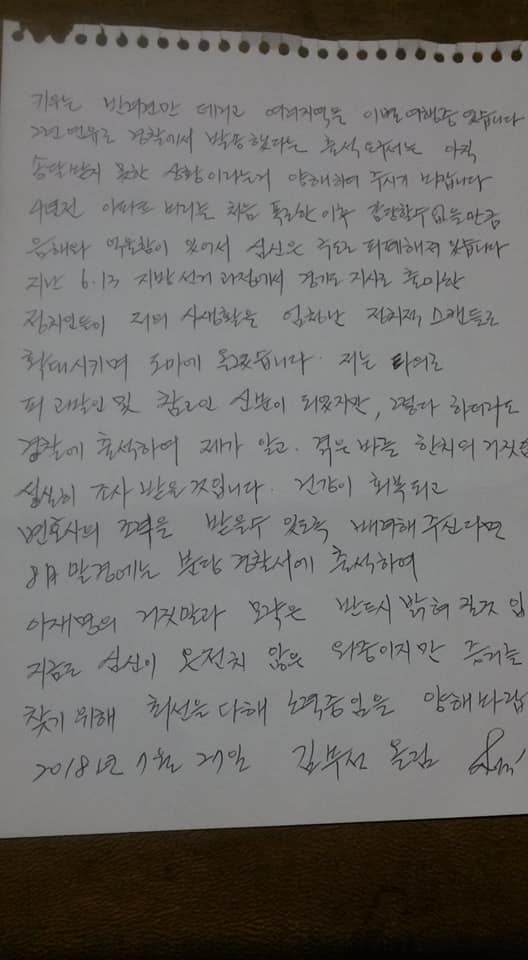 키우는 반려견만 데리고 여러지역을 이별 여행중 있습니다
그런 연유로 경찰에서 발송했다는 출석 요구서는 아직
송달 받지 못한 상황이라는거 양해하여 주시기 바랍니다
4년전 아파트 비리를 처음 폭로한 이후 감당할수 없을만큼
음해와 억울함이 있어서 심신은 극도로 피폐해져 있습니다
지난 6.13 지방선거 과정에서 경기도 지사로 출마한
정치인들이 저의 사생활을 엄청난 정치적 스캔들로
확대시키며 도마에 올렸습니다. 저는 타의로
피고발인 및 참고인 신분이 되었지만, 그렇다 하더라도
경찰에 출석하여 제가 알고. 겪은 바를 한치의 거짓없
성실히 조사 받을것입니다. 건강이 회복되고
변호사의 조력을 받을수 있도록 배려해 주신다면
8月 말경에는 분당 경찰서에 출석하여
이재명의 거짓말과 모략은 반드시 밝혀 질것 입
지금도 심신이 온전치 않은 와중이지만 증거를
찾기 위해 최선을 다해 노력중임을 양해바랍
2018년 7월 27일 김부선 올림